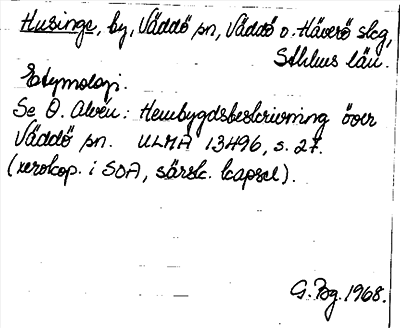 Husinge, by, Väddö sn, Väddö o. Häverö skg,
Sthlms län.
Etymologi.
Se O. Alvén: Hembygdsbeskrivning över
Väddö sn. ULMA 13496, s. 27.
(xerokop. i SOA, särsk. kapsel).
G. Bg. 1968.